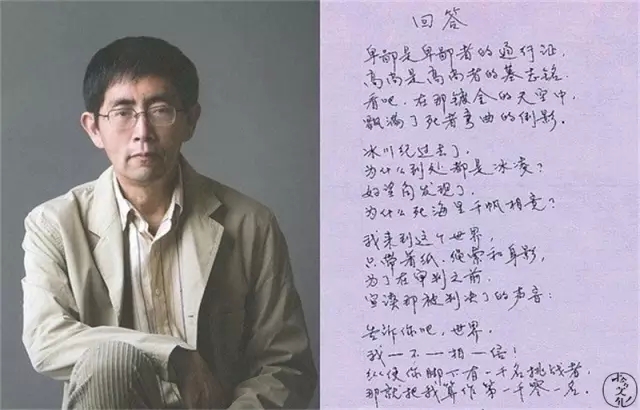 回答
卑鄙是卑鄙者的通行证,
高尚是高尚者的墓志铭.
看吧.在那镀金的天空中,
飘满了死者弯曲的倒影.
冰川纪过去了.
为什么到处都是冰凌?
好望角发现了.
为什么死海里千帆相竞?
我来到这个世界,
只带着纸.绳索和身影,
为了在审判之前.
宣读那被判决了的声音:
告诉你吧,世界.
我一不一相一信!
纵使你脚下有一千名挑战者,
那就把我算作第一千零一名.